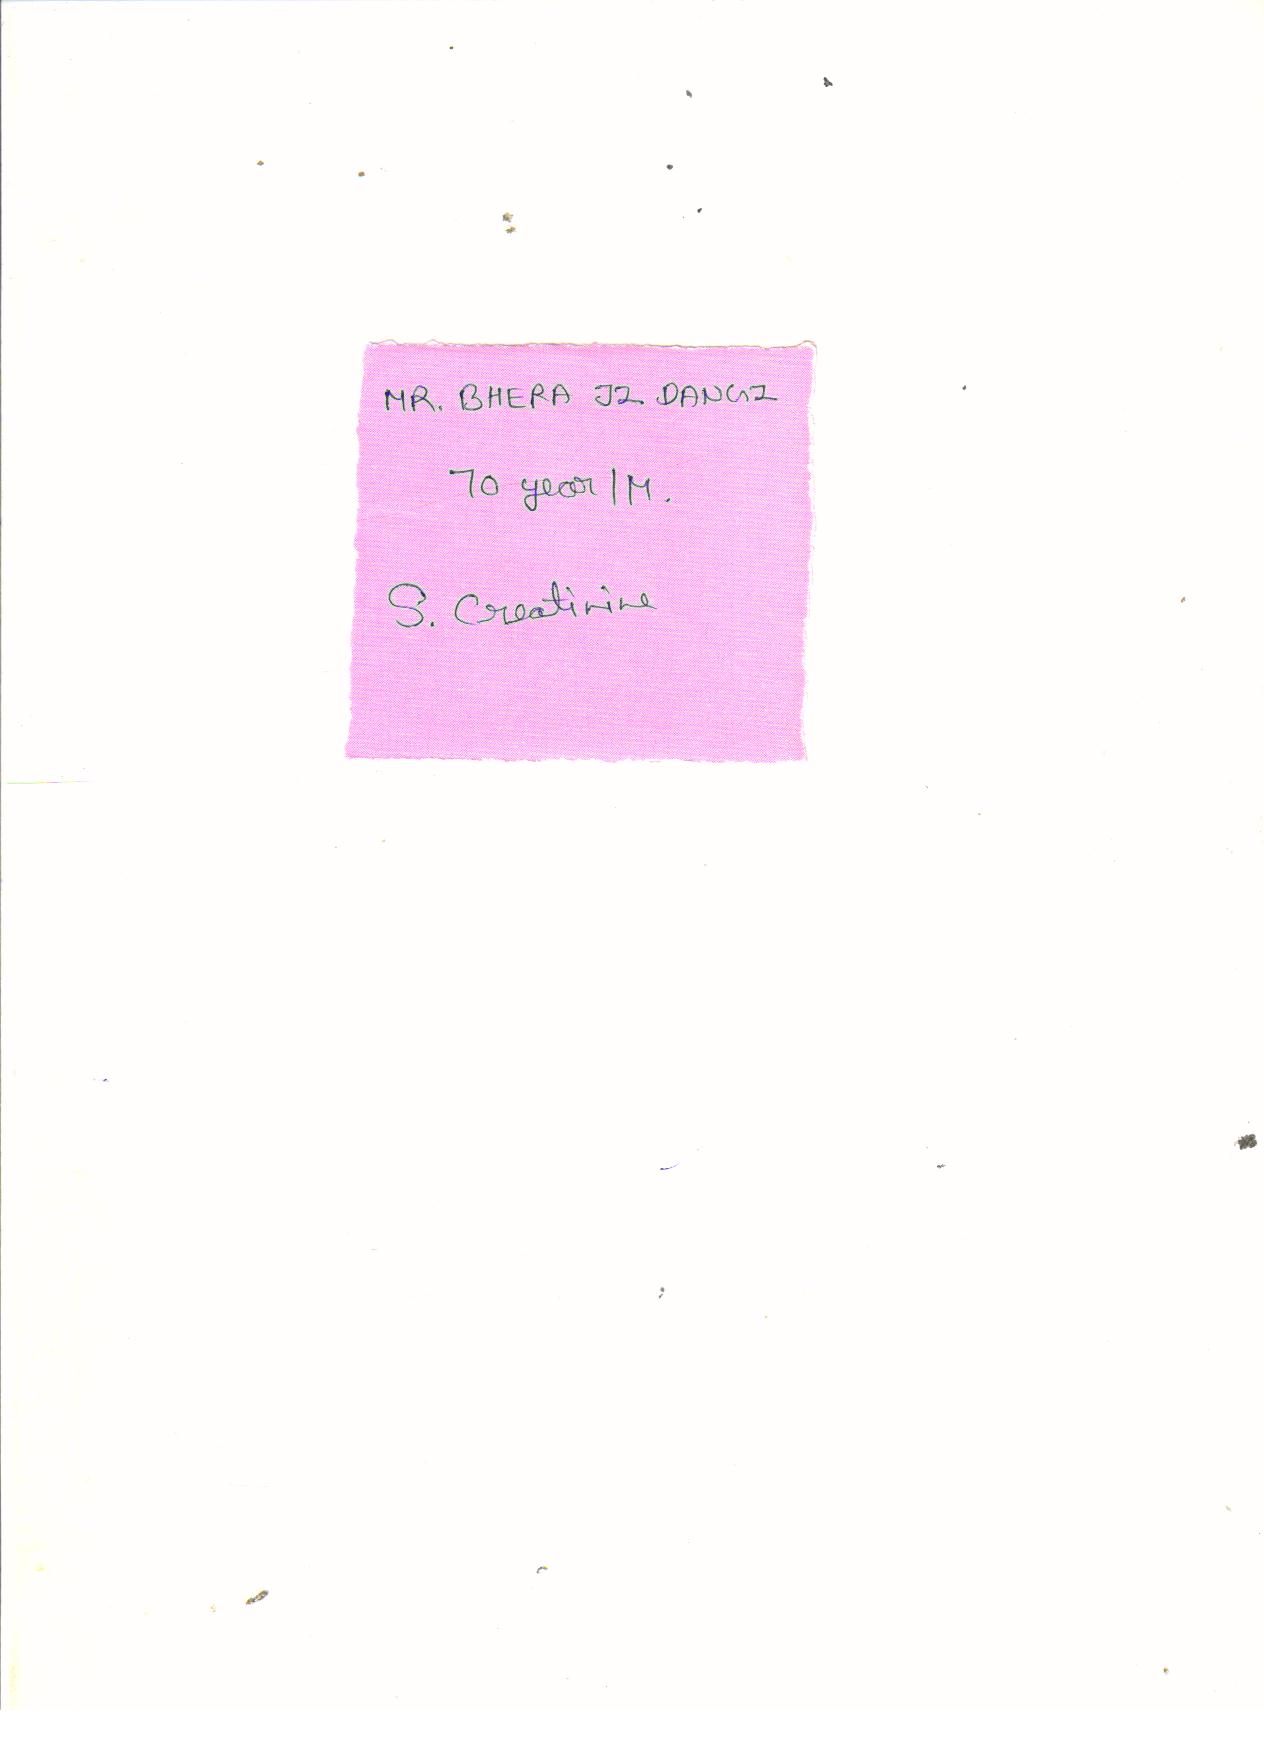 MR. BHERA JI DANGI
70 year/M.
S. Creatinine